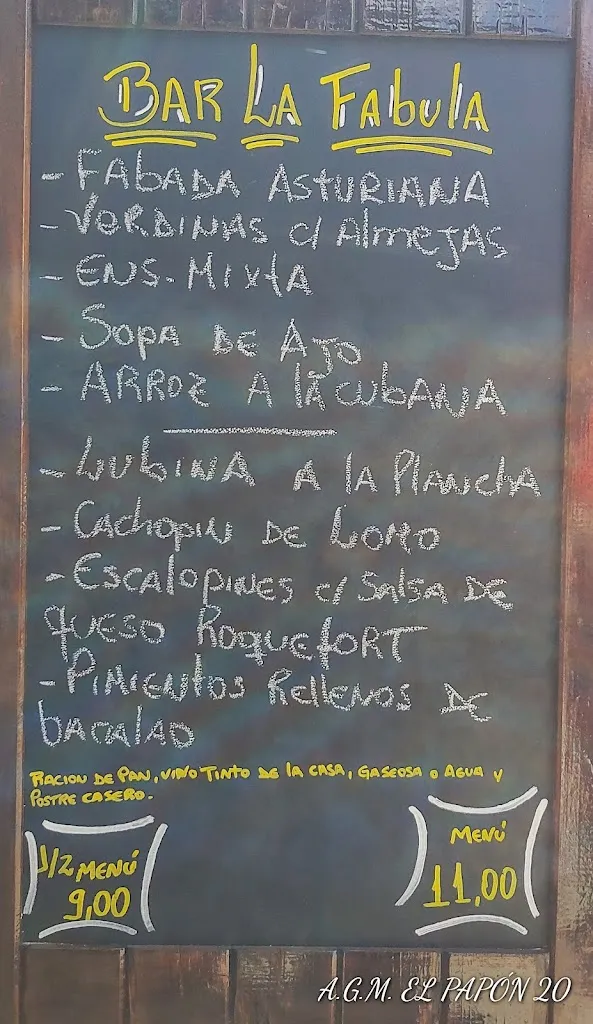 BAR LA FAbulA
- FAbADA ASTURIANA
- VERDINAS c/ AlmEJAS
- ENS. MIxtA
- SopA DE AJO
- ARROZ A lA cubANA
- LubiNA A lA PlANchA
- CAchopiN DE LOMO
- ESCAlOPINES c/ SAlSA DE
quESO ROquEfORT
- PiMiENtOS REllENOS DE
bACAlAO
RACION DE PAN, VINO TINTO DE lA CASA, GASEOSA O AGUA Y
POSTRE CASERO.
1/2 MENÚ
9,00
MENÚ
11,00
A.G.M. EL PAPÓN 20